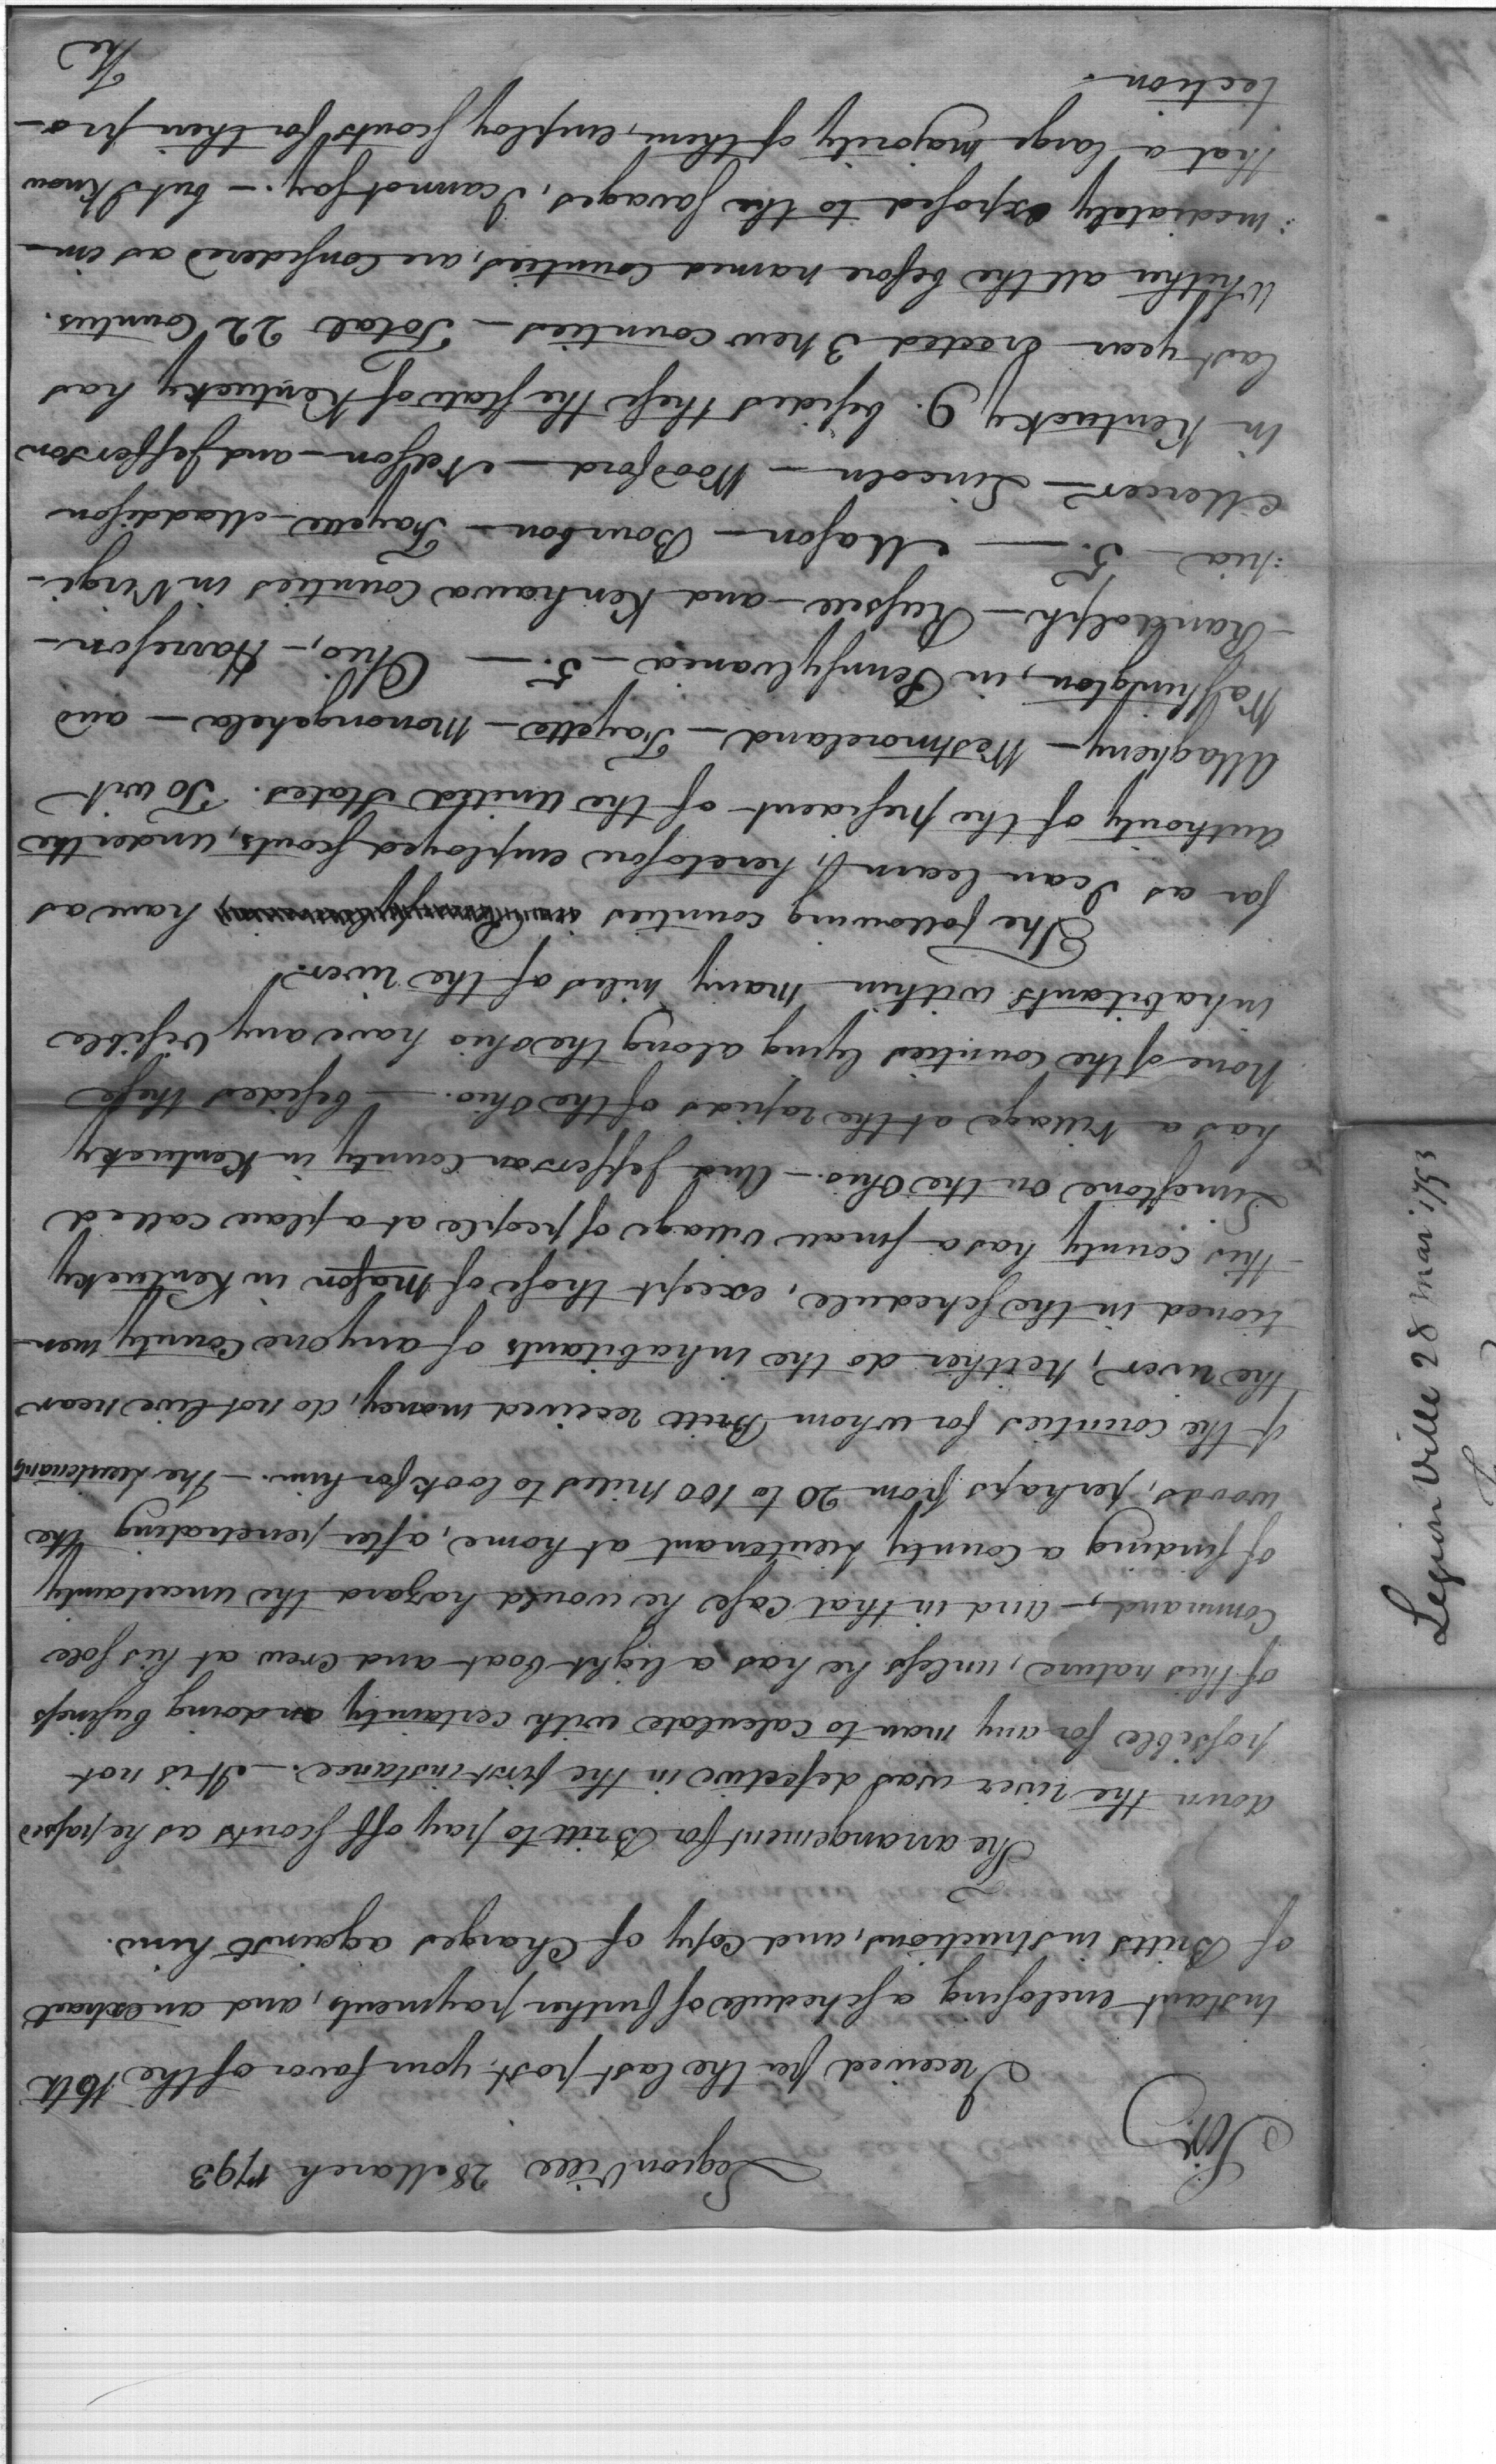 Legion Ville 28 March 1793
Sir
I received per the last post, your favor of the 16th
Instant inclosing a schedule of further payments, and an extract
of Britts instructions, and copy of Charges against him.
The arrangement for Britt to pay off scouts as he passed
down the river was defective in the first instance. It is not
possible for any man to calculate with certainty on doing business
of this nature, unless he has a light boat and crew at his sole
Command, – and in that case he would hazard the uncertainty
of finding a County Lieutenant at home, after penetrating the
woods, perhaps from 20 to 100 Miles to look for him. – The Lieutenants
of the counties for whom Britt received money, do not live near
the river, neither do the inhabitants of any one County men-
tioned in the schedule, except those of Mason in Kentucky
this county has a small village of people at a place called
Limestone on the Ohio. – And Jefferson County in Kentucky
has a village at the rapids of the Ohio. – besides these
None of the counties lying along the Ohio have any visible
inhabitants within many miles of the river.
The following counties in Pennsylvania, have as
far as I can learn, heretofore employed scouts, under the
authority of the president of the United States. To wit
Allagheny – Westmoreland – Fayette – Monongahela – and
Washington, in Pennsylvania – 5. – Ohio, – Harreson –
Randolph – Russell – and Kenhawa Counties in Virgi-
:nia – 5. – Mason – Bourbon – Fayette – Maddison
Mercer – Lincoln – Woodford – Nelson – and Jefferson
in Kentucky 9. besides these the state of Kentucky has
last year erected 3 new counties – Total 22 Counties.
Whether all the before named Counties, are considered as im-
:mediately exposed to the savages, I cannot say. – but I know
that a large majority of them, employ scouts for their pro-
tection.
The
Legion Ville 28 Mar 1793